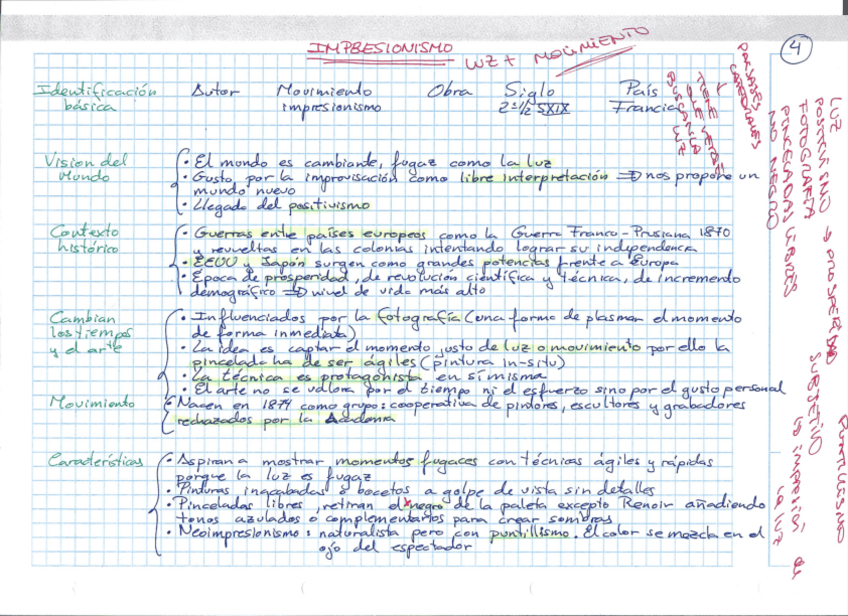 IMPRESIONISMO LUZ + MOVIMIENTO
4
Identificación básica
Autor Movimiento Obra Siglo País
impresionismo 2º 1/2 SXIX Francia
Vision del Mundo
· El mundo es cambiande, fugaz como la luz
· Gusto, por la improvisación como libre interpretación => nos propone un
mundo nuevo
· Llegado del positivismo
Contexto histórico
· Guerras entre países europeos como la Guerra Franco-Prusiana 1870
y revueltas en las colonias intentando lograr su independenca
· EEUU y Japón surgen como grandes potencias frente a Europa
· Época de prosperidad, de revolución científica y técnica, de incremento
demográfico => nivel de vida más alto
Cambian los tiempos y el arte
· Influenciados por la fotografía (una forma de plasmar el momento
de forma inmediata)
· La idea es captar el momento justo de luz o movimiento por ello la
pincelada ha de ser ágiles (pintura in-situ)
· La técnica es protagonista en sí misma
· El arte no se valora por el tiempo ni el esfuerzo sino por el gusto personal
Movimiento
· Nacen en 1874 como grupo: cooperativa de pintores, escultores y grabadores
rechazados por la Academia
Características
· Aspiran a mostrar momentos fugaces con técnicas ágiles y rápidas
porque la luz es fugaz
· Pinturas inacabadas o bocetos a golpe de vista sin detalles
· Pinceladas libres, retiran el negro de la paleta excepto Renoir añadiendo
tonos azulados o complementarios para crear sombras
· Neoimpresionismo: naturalista pero con puntillismo. El color se mezcla en el
ojo del espectador
PAISAJES
TIENE QUE VERSE
BUSCAN LA LUZ
LUZ
POSITIVISMO
FOTOGRAFÍA
PINCELADAS LIBRES
NO NEGRO
SUBJETIVO
PUNTILLISMO
la impresión de
la luz